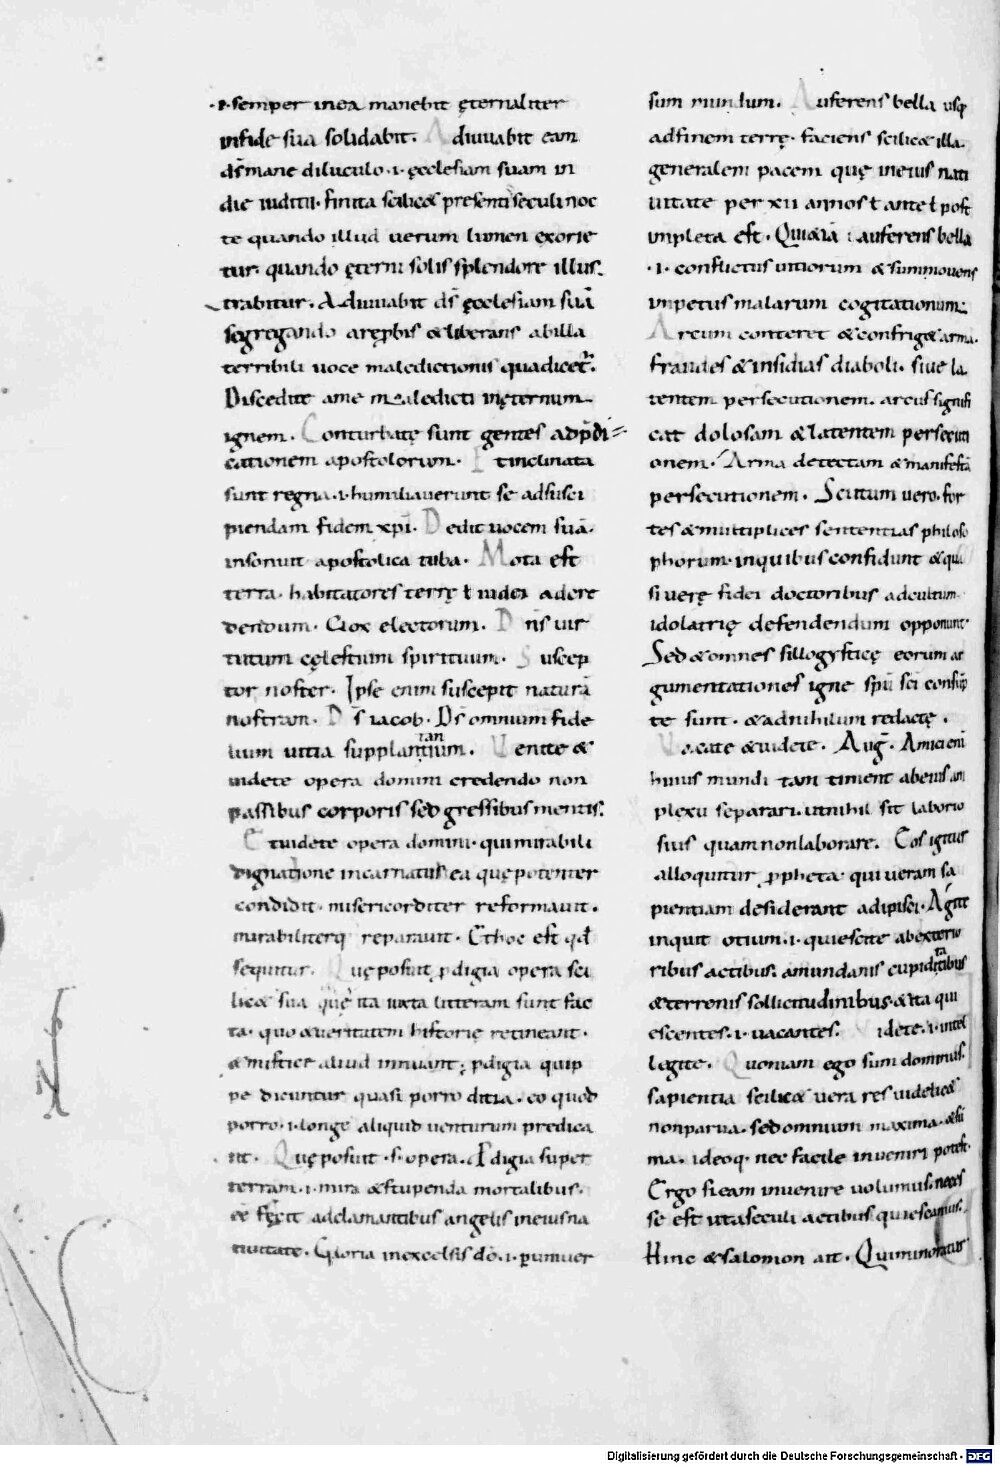 .i. semper in ea manebit ęternaliter
in fide sua solidabit. Adiuuabit eam
ds̄ mane diluculo .i. ęcclesiam suam in
die iudicii. finita scilicet presenti seculi noc
te quando illud uerum lumen exorie
tur. quando ęterni solis splendore illus
trabitur. Adiuuabit ds̄ ęcclesiam suā
segregando a rep̄bis & liberans ab illa
terribili uoce maledictionis qua dicet̄.
Discedite a me maledicti in ęternum
ignem. Conturbatę sunt gentes ad p̄di
cationem apostolorum. Et inclinata
sunt regna .i. humiliauerunt se ad susci
piendam fidem xp̄i. Dedit uocem suā.
insonuit apostolica tuba. Mota est
terra. habitatores terrę ł iudei a dere
dendum. Uox electorum. Dn̄s uir
tutum cęlestium spirituum. Suscep
tor noster. Ipse enim suscepit naturā
nostram. Ds̄ iacob. Ds̄ omnium fide
lium uitia supplantantium. Uenite &
uidete opera domini credendo non
passibus corporis sed gressibus mentis.
Et uidete opera domini. qui mirabili
dignatione incarnatus ea quę potenter
condidit. misericorditer reformauit.
mirabiliterq; reparauit. Et hoc est qđ
sequitur. Quę posuit p̄digia opera sci
licet sua quę ita iuxta litteram sunt fac
ta. quo & ueritatem historię retineant.
& mistice aliud innuant; p̄digia quip
pe dicuntur quasi porro dicia. eo quod
porro .i. longe aliquid uenturum predica
nt. Quę posuit .s. opera. P̄digia super
terram .i. mira & stupenda mortalibus.
& fecit adclamantibus angelis in eius na
tiuitate. Gloria in excelsis dō .i. p uniuer
sum mundum. Auferens bella usq;
ad finem terrę. faciens scilicet illa
generalem pacem quę in eius nati
uitate per xii annos ł ante ł post
inpleta est. Qui etiā auferens bella
.i. conflictus uitiorum & summouens
inpetus malarum cogitationum.
Arcum conteret & confriget arma.
fraudes & insidias diaboli. siue la
tentem persecutionem. arcus signifi
cat dolosam & latentem persecuti
onem. Arma detectam & manifestā
persecutionem. Scutum uero. for
tes & multiplices sententias philoso
phorum. in quibus confidunt & qua
si uerę fidei doctoribus ad cultum
idolatrię defendendum opponunt.
Sed & omnes sillogysticę eorum ar
gumentationes igne sp̄u sc̄i consūp
te sunt. & ad nihilum redactę.
Uocate & uidete. Aug̅. Amici eni̅
huius mundi tam timent ab eius am
plexu separari. ut nihil sit laborio
sius quam non laborare. Eos igitur
alloquitur p̱pheta. qui ueram sa
pientiam desiderant adipisci. Agite
inquit otium .i. quiescite ab exterio
ribus actibus. a mundanis cupiditatibus
& terrenis sollicitudinibus. & ita qui
escentes .i. uacantes. idete .i. intel
legite. Quoniam ego sum dominus.
sapientia scilicet uera res uidelicet
non parua. sed omnium maxima. & sū
ma. ideoq; nec facile inueniri potest.
Ergo si eam inuenire uolumus. neces
se est ut a seculi actibus quiescamus.
Hinc & salomon ait. Qui minoratur
Digitalisierung gefördert durch die Deutsche Forschungsgemeinschaft - DFG